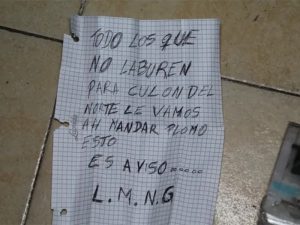 TODO LOS QUE
NO LABUREN
PARA CULON DEL
NORTE LE VAMOS
AH MANDAR PLOMO
ESTO
ES AVISO........
L.M.N.G